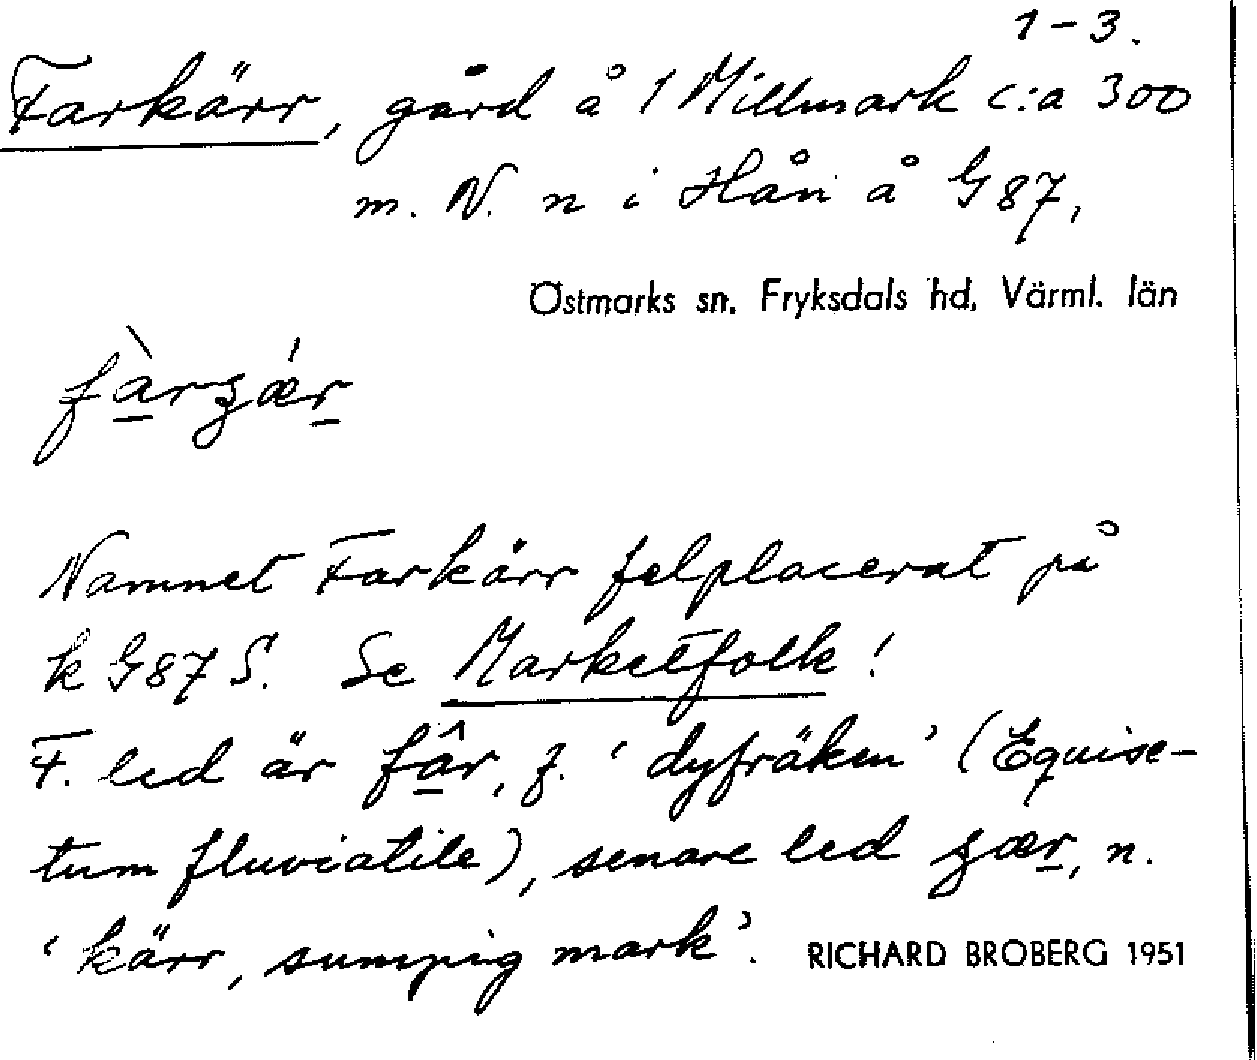 1-3.
Farkärr, gård å 1 Millmark c:a 300
m. N. n i Hån å G 87,
Östmarks sn. Fryksdals hd, Värml. län
fàrʒǽr
Namnet Farkärr felplacerat på
k G87 S. Se Marketfolk!
F. led är fâr, f. 'dyfräken' (Equise-
tum fluviatile), senare led ʒær, n.
'kärr, sumpig mark'. RICHARD BROBERG 1951